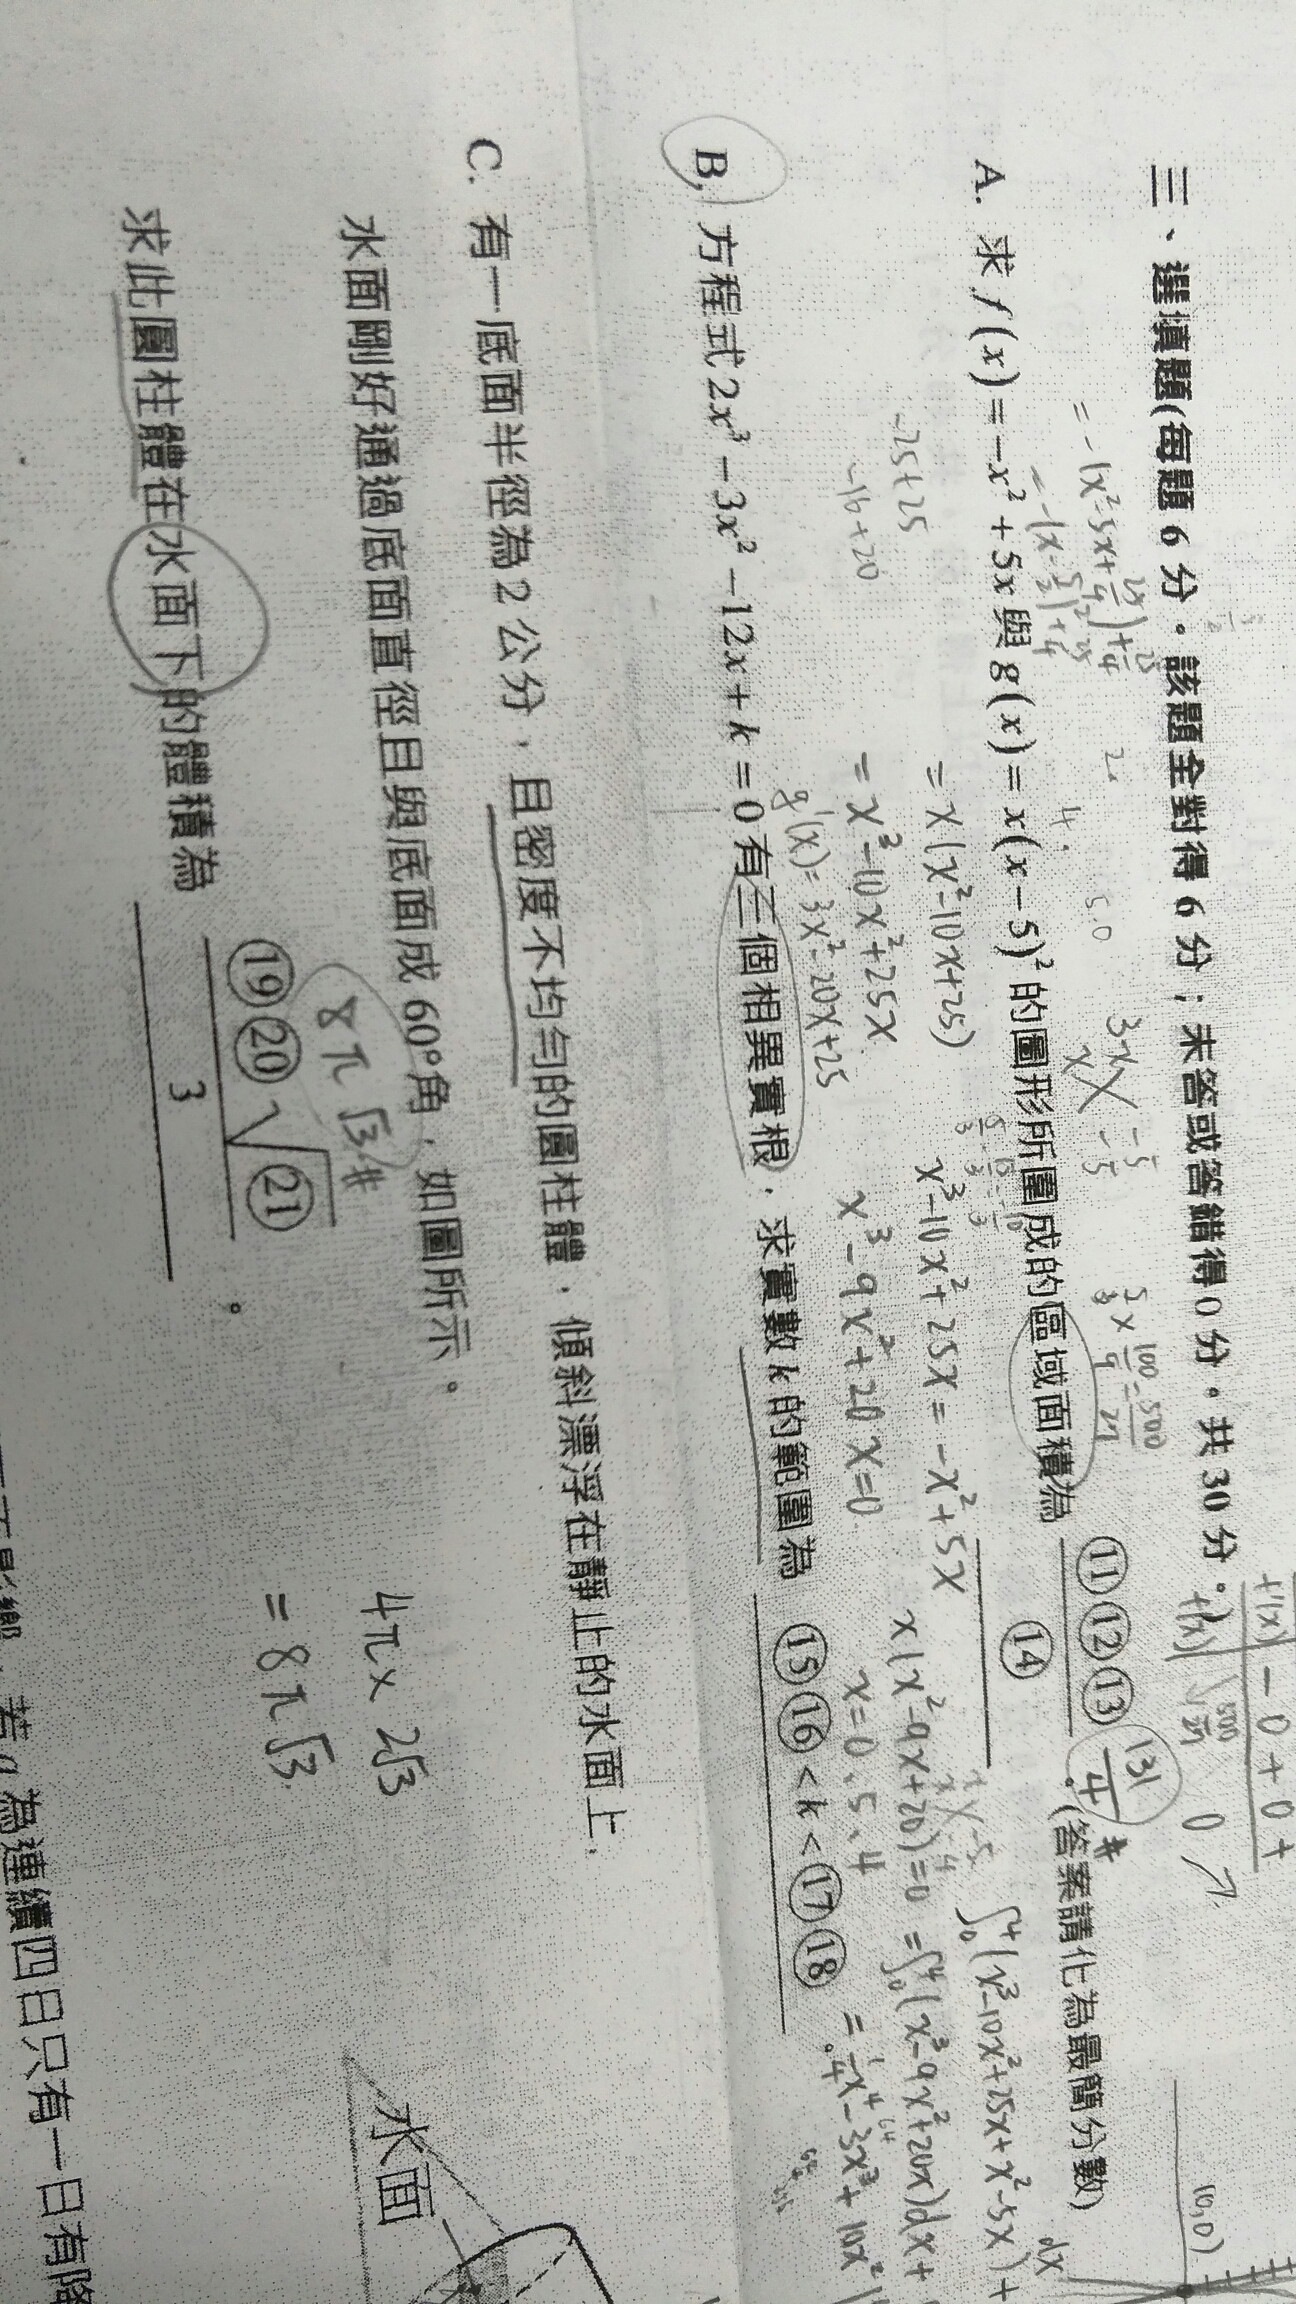 三、選填題(每題6分。該題全對得6分;未答或答錯得0分。共30分。)
A. 求 f(x)=-x²+5x 與 g(x)=x(x-5)² 的圖形所圍成的區域面積為 ⑪⑫⑬/⑭ 。(答案請化為最簡分數)
131/4 #
= -(x²-5x+25/4)+25/4
= -(x-5/2)²+25/4
f'(x) - 0 + 0 +
f(x) 500/27 0 ↗
3x -5
x -5
5/3 × 100/9 = 500/27
-25+25
-16+20
= x(x²-10x+25)
= x³-10x²+25x
g'(x)=3x²-20x+25
x³-10x²+25x = -x²+5x
x³-9x²+20x=0
x(x²-9x+20)=0
x=0、5、4
∫₀⁴(x³-10x²+25x+x²-5x)dx+
=∫₀⁴(x³-9x²+20x)dx+
=1/4x⁴-3x³+10x²|
B. 方程式 2x³-3x²-12x+k=0 有三個相異實根,求實數 k 的範圍為 ⑮⑯<k<⑰⑱ 。
C. 有一底面半徑為2公分,且密度不均勻的圓柱體,傾斜漂浮在靜止的水面上,
水面剛好通過底面直徑且與底面成60°角,如圖所示。
求此圓柱體在水面下的體積為 ⑲⑳√㉑/3 。
8π√3 #
4π×2√3
=8π√3
水面
為連續四日只有一日有降